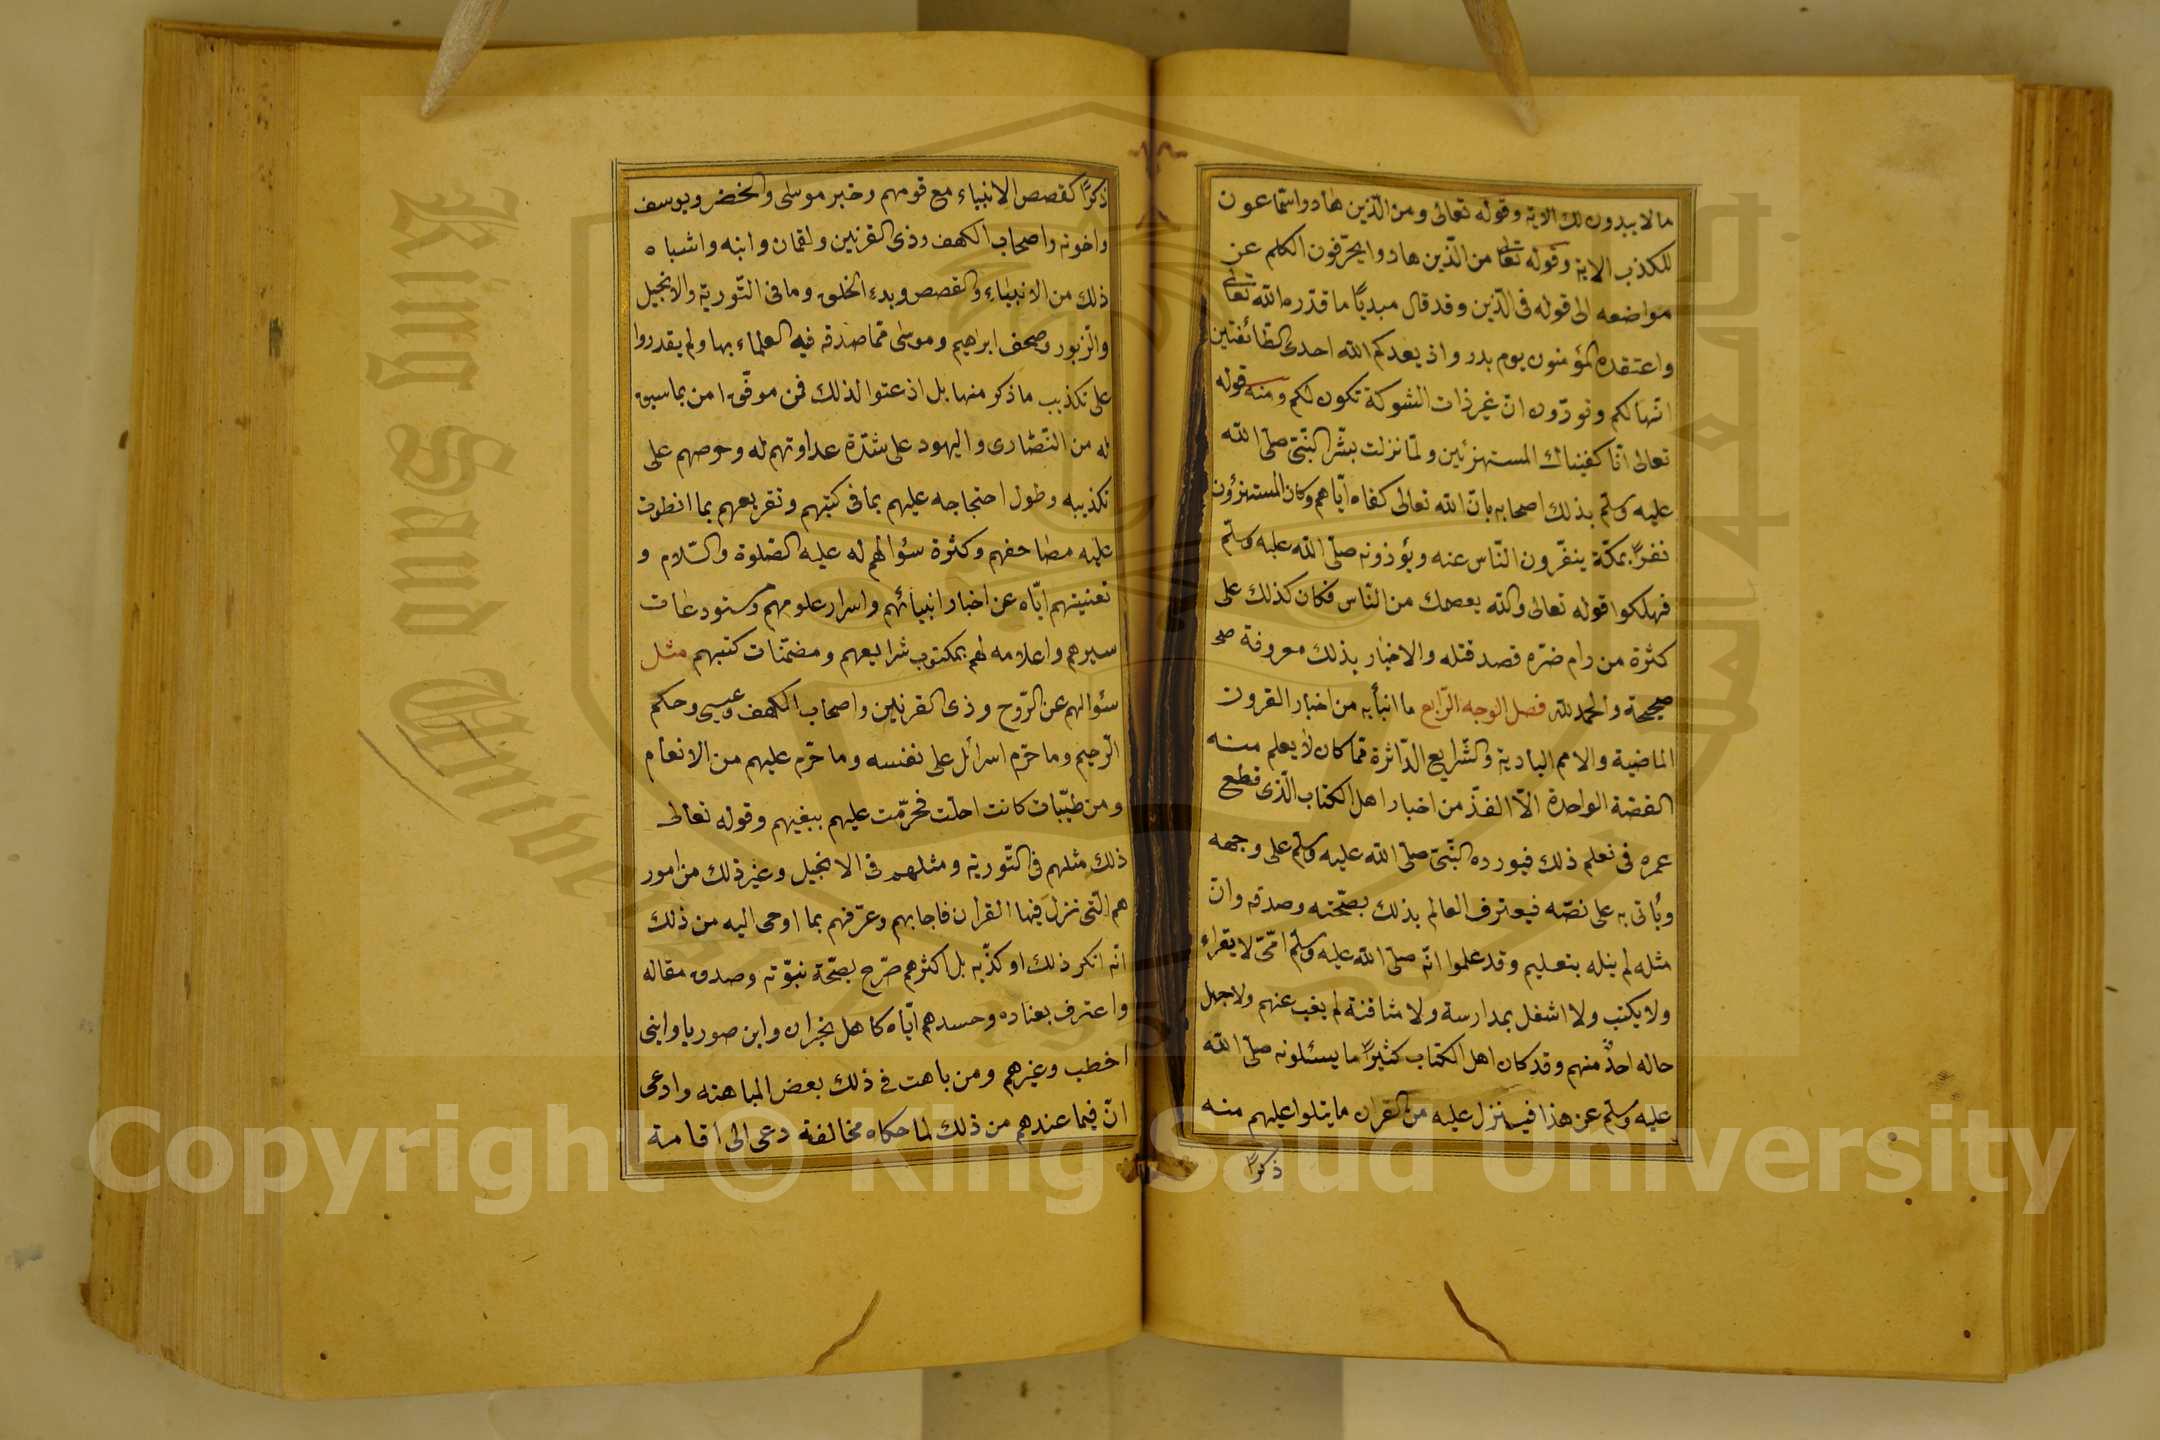 ما لا يبدون لك الاية وقوله تعالى ومن الّذين هادوا سمّاعون
للكذب الاية وقوله تعا من الّذين هادوا يحرّفون الكلم عن
مواضعه الى قوله فى الدّين وقد قال مبديًا ما قدّره الله تعالى
واعتقده المؤمنون يوم بدر واذ يعدكم الله احدى الطّائفتين
انّها لكم وتودّون انّ غير ذات الشوكة تكون لكم ومنه قوله
تعالى انّا كفيناك المستهزئين ولمّا نزلت بشّر النّبىّ صلّى الله
عليه وسلّم بذلك اصحابه بانّ الله تعالى كفاه ايّاهم وكان المستهزؤن
نفرًا بمكّة ينفّرون النّاس عنه ويؤذونه صلّى الله عليه وسلّم
فهلكوا قوله تعالى والله يعصمك من النّاس فكان كذلك على
كثرة من رام ضرّه قصد قتله والاخبار بذلك معروفة صح
صحيحة والحمد لله فصل الوجه الرّابع ما انبأ به من اخبار القرون
الماضية والامم البادية والشّرايع الدّاثرة ممّا كان لا يعلم منه
القصّة الواحدة الّا الفذّ من اخبار اهل الكتاب الّذى قطع
عمره فى تعلم ذلك فيورده النّبىّ صلّى الله عليه وسلّم على وجهه
ويأتى به على نصّه فيعترف العالم بذلك بصحّته وصدقه وانّ
مثله لم ينله بتعليم وقد علموا انّه صلّى الله عليه وسلّم امّىّ لا يقراء
ولا يكتب ولا اشتغل بمدارسة ولا مثافنة لم يغب عنهم ولا جهل
حاله احدٌ منهم وقد كان اهل الكتاب كثيرًا ما يسئلونه صلّى الله
عليه وسلّم عن هذا فينزل عليه من القران ما يتلوا عليهم منه
ذكرًا
ذكرًا كقصص الانبياء مع قومهم وخبر موسى والخضر ويوسف
واخوته واصحاب الكهف وذى القرنين ولقمان وابنه واشباه
ذلك من الانبياء والقصص وبدء الخلق وما فى التّورية والانجيل
والزّبور وصحف ابرهيم وموسى ممّا صدّقه فيه العلماء بها ولم يقدروا
على تكذيب ما ذكر منها بل اذعنوا لذلك فمن موفّق امن بما سبق
له من النّصارى واليهود على شدّة عداوتهم له وحرصهم على
تكذيبه وطول احتجاجه عليهم بما فى كتبهم وتقريعهم بما انطوت
عليه مصاحفهم وكثرة سؤالهم له عليه الصّلوة والسّلام و
تعنيتهم ايّاه عن اخبار انبيائهم واسرار علومهم ومستودعات
سيرهم واعلامه لهم بمكتوب شرايعهم ومضمّنات كتبهم مثل
سئوالهم عن الرّوح وذى القرنين واصحاب الكهف وعيسى وحكم
الرّجيم وما حرّم اسرائل على نفسه وما حرّم عليهم من الانعام
ومن طيّبات كانت احلّت فحرّمت عليهم ببغيهم وقوله تعالى
ذلك مثلهم فى التّورية ومثلهم فى الانجيل وغير ذلك من امور
هم الّتى نزل فيها القران فاجابهم وعرّفهم بما اوحى اليه من ذلك
انّه انكر ذلك او كذّبه بل اكثرهم صرّح بصحّة نبوّته وصدق مقاله
واعترف بعناده وحسدهم ايّاه كاهل نجران وابن صوريا وابنى
اخطب وغيرهم ومن باهت فى ذلك بعض المباهتة وادعى
انّ فيما عندهم من ذلك لما حكاه مخالفة دعى الى اقامة
King Saud University
Copyright © King Saud University